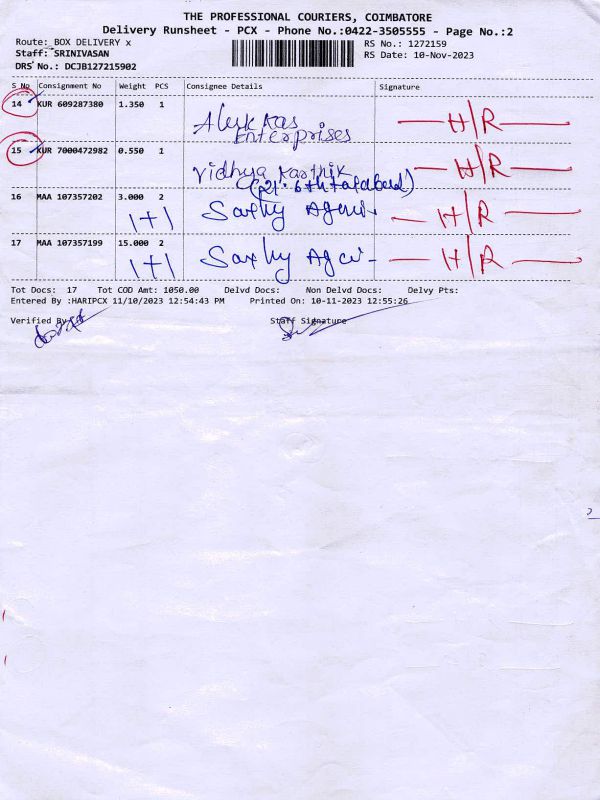 THE PROFESSIONAL COURIERS, COIMBATORE
Delivery Runsheet - PCX - Phone No.:0422-3505555 - Page No.:2
Route: BOX DELIVERY x
RS No.: 1272159
Staff: SRINIVASAN
RS Date: 10-Nov-2023
DRS No.: DCJB127215902
S No Consignment No Weight PCS Consignee Details Signature
14 KUR 609287380 1.350 1
Enterprises H/R
15 KUR 7000472982 0.550 1
Vidhya Karthik H/R
16 MAA 107357202 3.000 2
1+1 H/R
17 MAA 107357199 15.000 2
1+1 H/R
Tot Docs: 17 Tot COD Amt: 1050.00 Delvd Docs: Non Delvd Docs: Delvy Pts:
Entered By :HARIPCX 11/10/2023 12:54:43 PM Printed On: 10-11-2023 12:55:26
Verified By Staff Signature